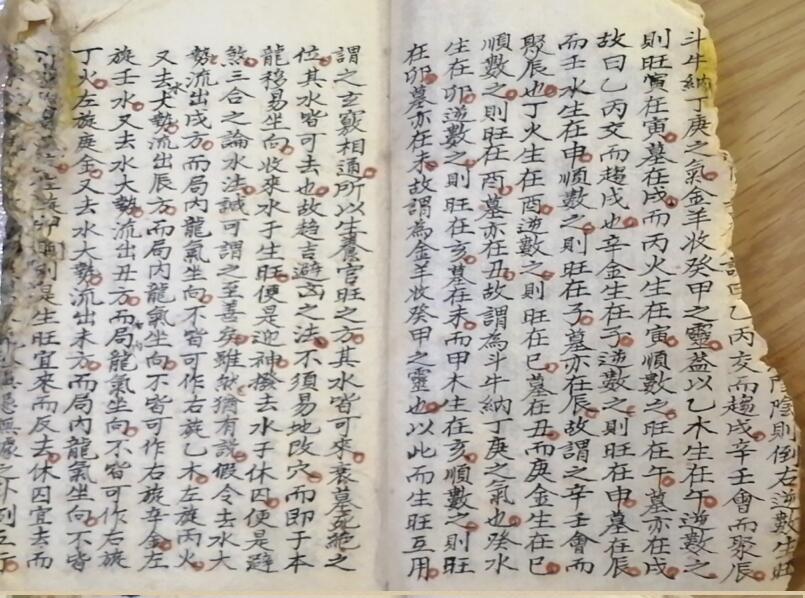 陰則倒右逆數生旺
曰乙丙交而趨戌辛壬會而聚辰
斗牛納丁庚之氣金羊收癸甲之靈蓋以乙木生在午逆數之
則旺寅在寅墓在戌而丙火生在寅順數之旺在午墓亦在戌
故曰乙丙交而趨戌也辛金生在子逆數之則旺在申墓在辰
而壬水生在申順數之則旺在子墓亦在辰故謂之辛壬會而
聚辰也丁火生在酉逆數之則旺在巳墓在丑而庚金生在巳
順數之則旺在酉墓亦在丑故謂為斗牛納丁庚之氣也癸水
生在卯逆數之則旺在亥墓在未而甲木生在亥順數之則旺
在卯墓亦在未故謂為金羊收癸甲之靈也以此而生旺互用
謂之玄竅相通所以生養官旺之方其水皆可來衰墓死絕之
位其水皆可去也故趨吉避凶之法不須易地改穴而即于本
龍移易坐向收來水于生旺便是迎神撥去水于休囚便是避
煞三合之論水法誠可謂之至善矣雖然猶有說假令去水大
勢流出戌方而局內龍氣坐向不皆可作右旋乙木左旋丙火
又去水大勢流出辰方而局內龍氣坐向不皆可作右旋辛金左
旋壬水又去水大勢流出丑方而局龍氣坐向不皆可作右旋
丁火左旋庚金又去水大勢流出未方而局內龍氣坐向不皆
則是生旺宜來而反去休囚宜去而